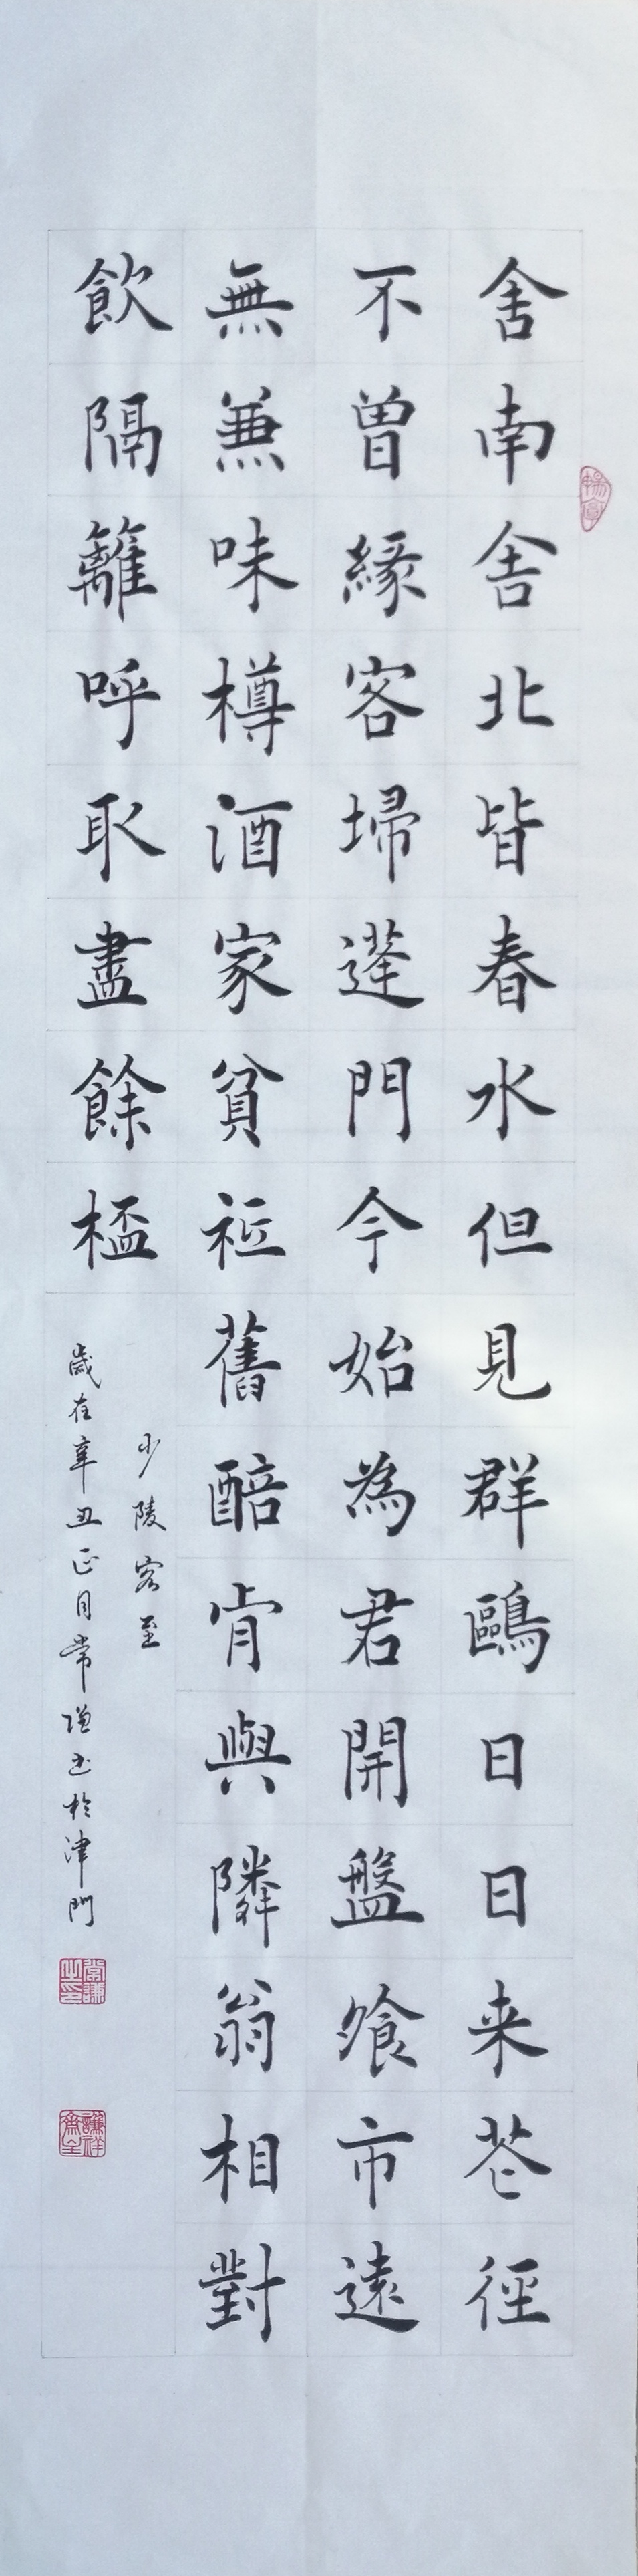 舍南舍北皆春水但見群鷗日日来花徑
不曾緣客埽蓬門今始為君開盤飱市遠
無兼味樽酒家貧秖舊醅肯與隣翁相對
飲隔籬呼取盡餘桮
少陵客至
歲在辛丑正月常謙书於津門
常謙之印